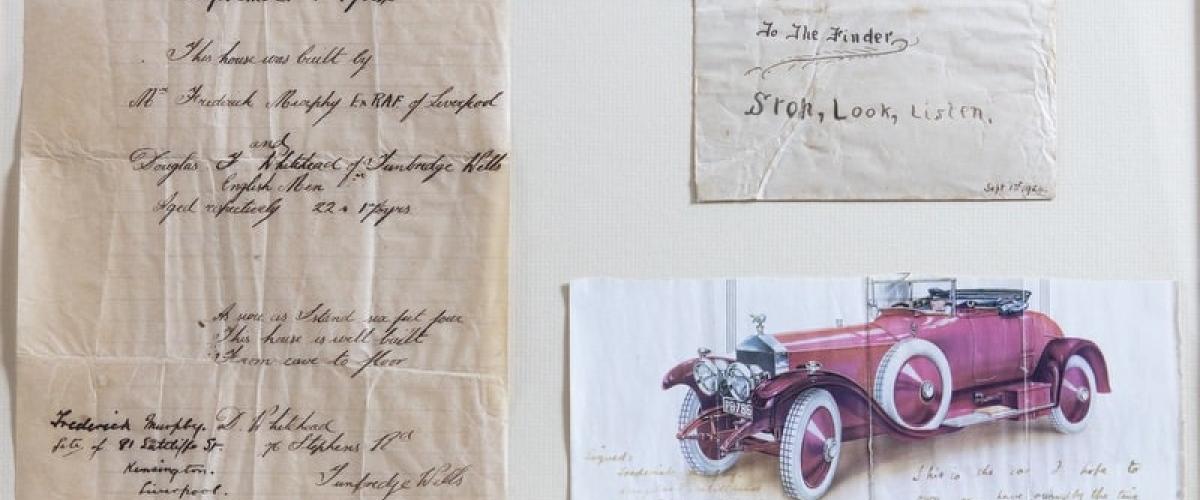 This house was built by
Mr Frederick Murphy Ex RAF of Liverpool
and
Douglas F Whitehead of Tunbridge Wells
English Men
Aged respectively 22 & 17 yrs
This house is well built
From eave to floor
Frederick Murphy. D. Whitehead
Late of 81 Sutcliffe St. 76 Stephens Rd
Kensington. Tunbridge Wells
Liverpool.
To The Finder
Stop, Look, Listen.
Sept 1st
Signed:
Frederick
This is the car I hope to
have owned by the time